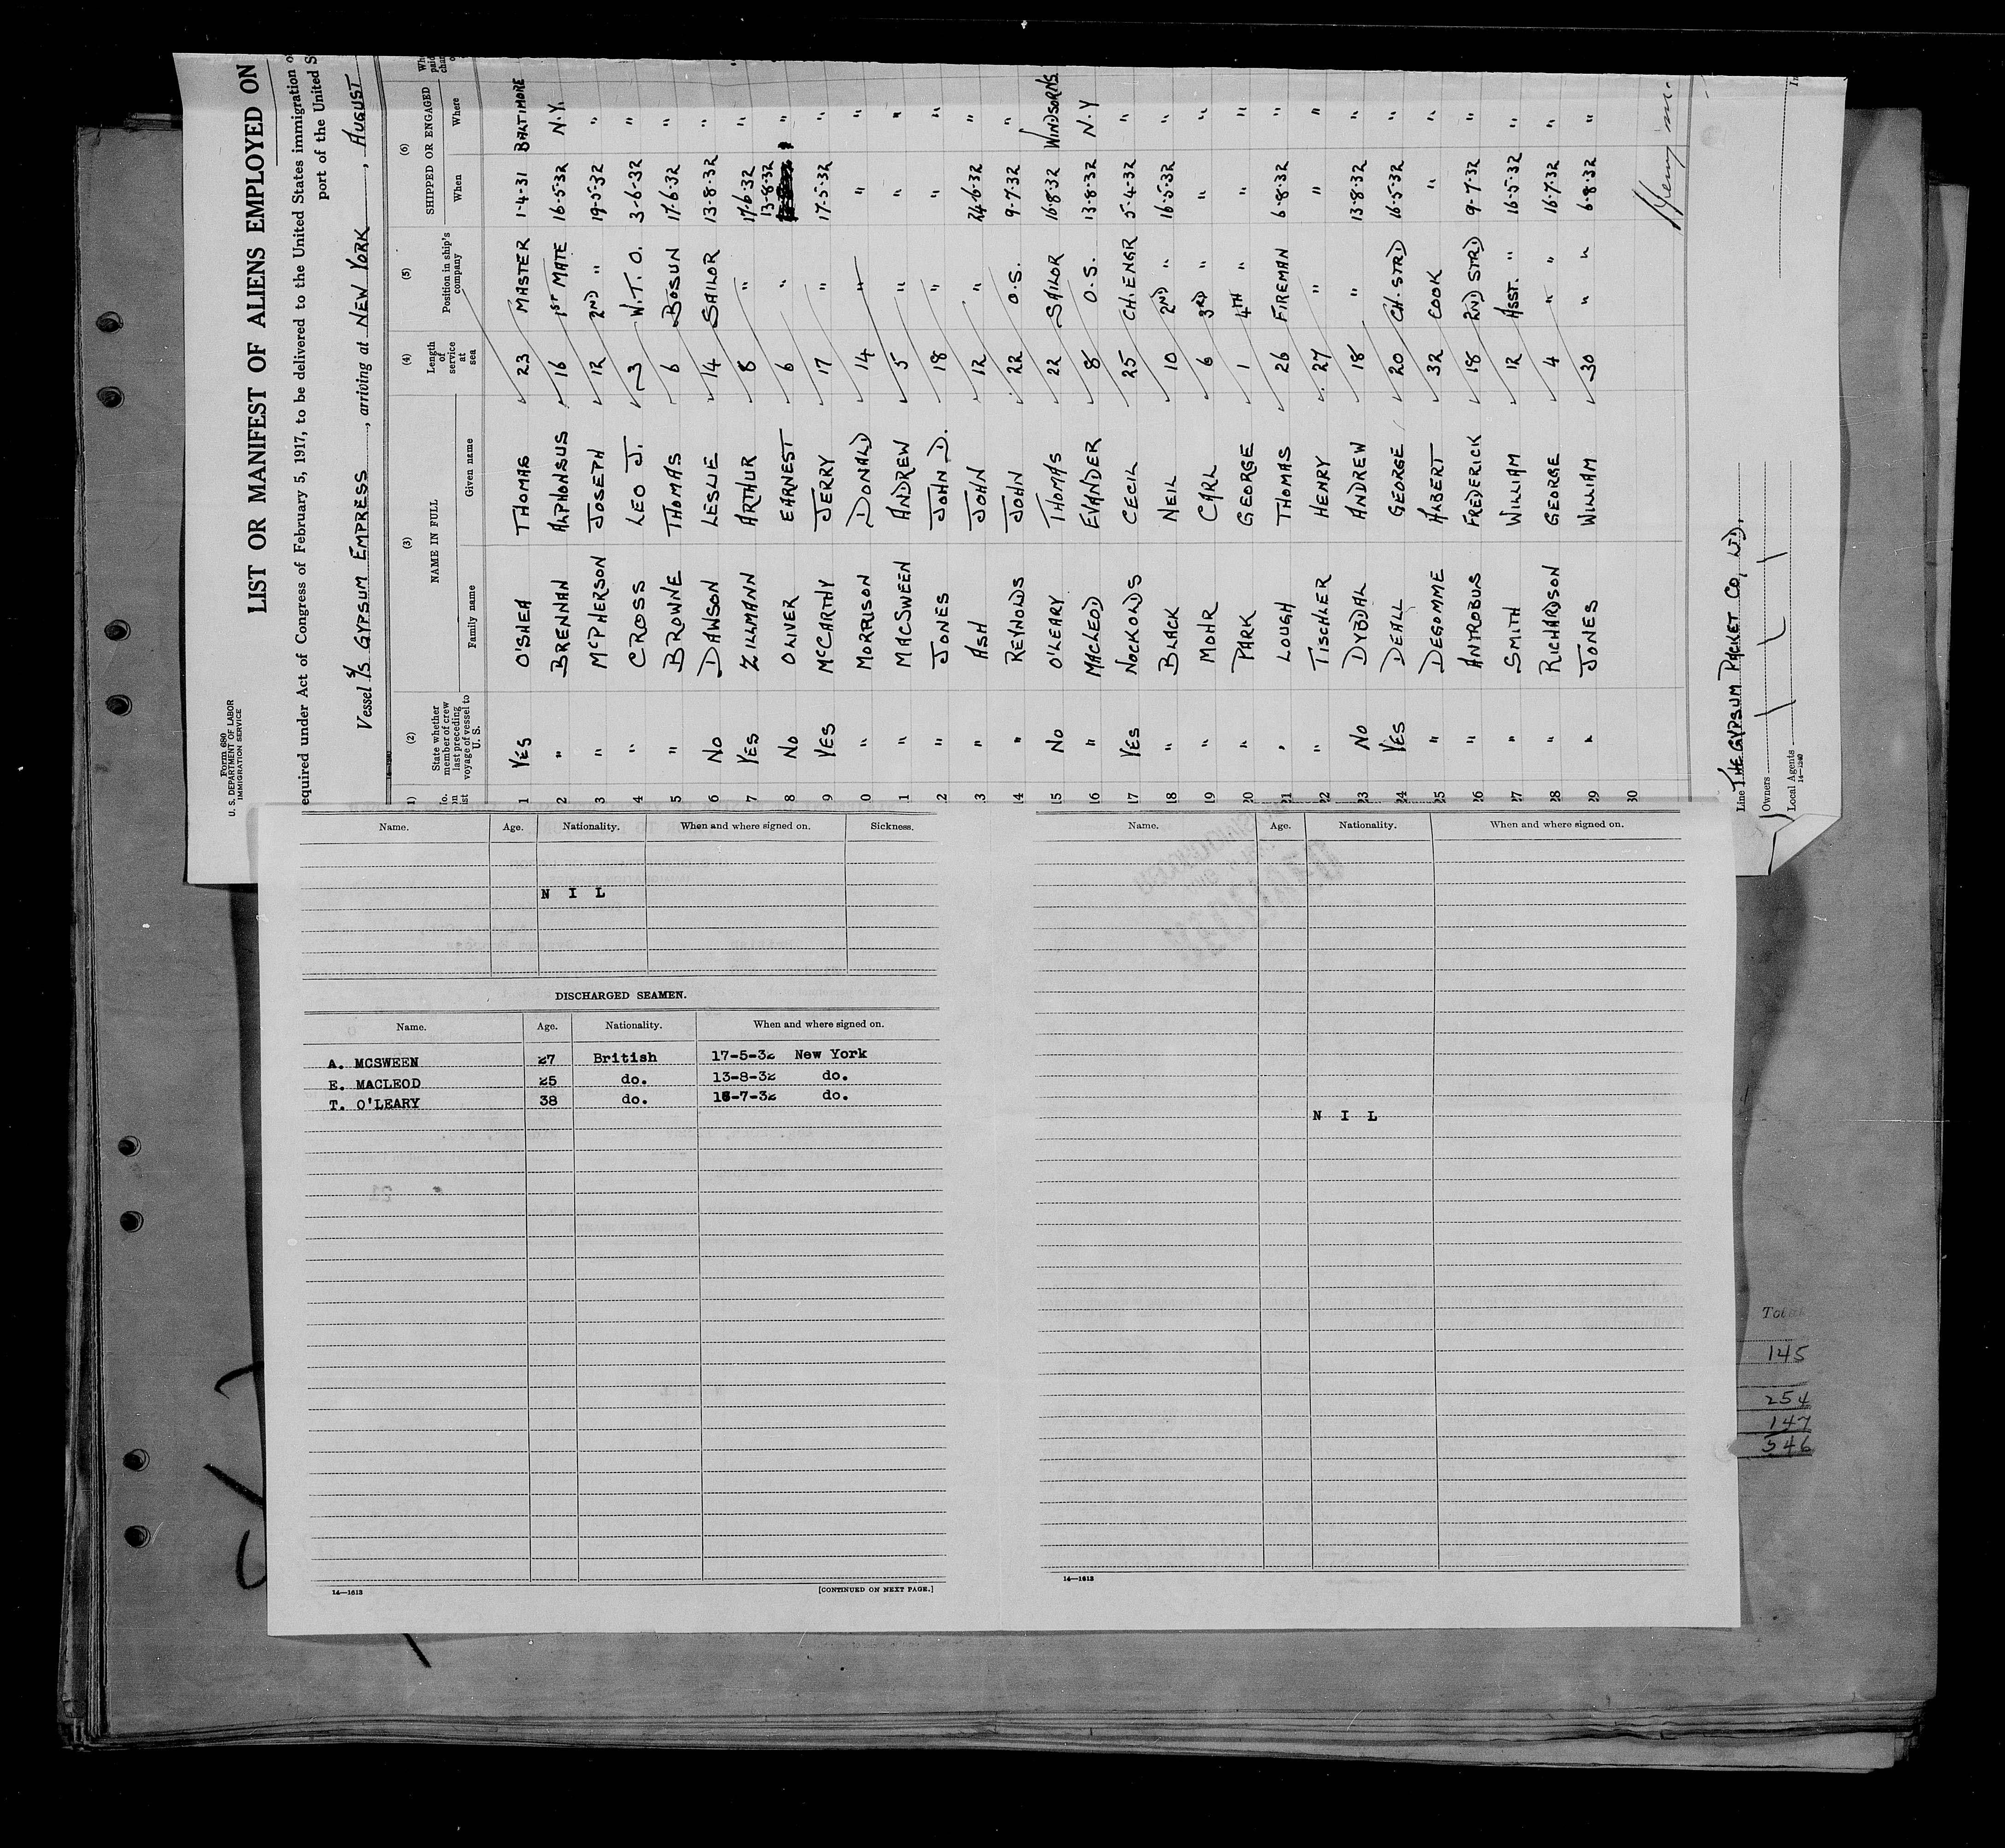 Form 680
U. S. DEPARTMENT OF LABOR
IMMIGRATION SERVICE
LIST OR MANIFEST OF ALIENS EMPLOYED ON
equired under Act of Congress of February 5, 1917, to be delivered to the United States immigration o
port of the United S
Vessel S/S GYPSUM EMPRESS, arriving at NEW YORK, AUGUST
(2) (3) (4) (5) (6)
State whether member of crew last preceding voyage of vessel to U. S. NAME IN FULL Length of service at sea Position in ship's company SHIPPED OR ENGAGED
Family name Given name When Where
1 YES O'SHEA THOMAS 23 MASTER 1-4-31 BALTIMORE
2 " BRENNAN ALPHONSUS 16 1ST MATE 16-5-32 N.Y.
3 " McPHERSON JOSEPH 12 2ND " 19-5-32 "
4 " CROSS LEO J. 3 W.T.O. 3-6-32 "
5 " BROWNE THOMAS 6 BOSUN 17-6-32 "
6 NO DAWSON LESLIE 14 SAILOR 13-8-32 "
7 YES ZILLMANN ARTHUR 8 " 17-6-32 "
8 NO OLIVER EARNEST 6 " 13-8-32 "
9 YES McCARTHY JERRY 17 " 17-5-32 "
0 " MORRISON DONALD 14 " " "
1 " MACSWEEN ANDREW 5 " " "
2 " JONES JOHN D. 18 " " "
3 " ASH JOHN 12 " 24-6-32 "
14 " REYNOLDS JOHN 22 O.S. 9-7-32 "
15 NO O'LEARY THOMAS 22 SAILOR 16-8-32 WINDSOR N.S.
16 " MACLEOD EVANDER 8 O.S. 13-8-32 N.Y
17 YES NOCKOLDS CECIL 25 CH. ENGR 5-4-32 "
18 " BLACK NEIL 10 2ND " 16-5-32 "
19 " MOHR CARL 6 3RD " " "
20 " PARK GEORGE 1 4TH " " "
21 " LOUGH THOMAS 26 FIREMAN 6-8-32 "
22 " TISCHLER HENRY 27 " " "
23 NO DYBDAL ANDREW 18 " 13-8-32 "
24 YES DEALL GEORGE 20 CH. STRD 16-5-32 "
25 " DEGOMME ALBERT 32 COOK " "
26 " ANTROBUS FREDERICK 18 2ND STRD 9-7-32 "
27 " SMITH WILLIAM 12 ASST. " 16-5-32 "
28 " RICHARDSON GEORGE 4 " " 16-7-32 "
29 " JONES WILLIAM 30 " " 6-8-32 "
30
Henry
Line THE GYPSUM PACKET CO, LTD.
Owners
Local Agents
14—1240
Name. Age. Nationality. When and where signed on. Sickness.
N I L
DISCHARGED SEAMEN.
Name. Age. Nationality. When and where signed on.
A. MCSWEEN 27 British 17-5-32 New York
E. MACLEOD 25 do. 13-8-32 do.
T. O'LEARY 38 do. 16-7-32 do.
14—1613 [CONTINUED ON NEXT PAGE.]
Name. Age. Nationality. When and where signed on.
N I L
14—1613
Total
145
254
147
546